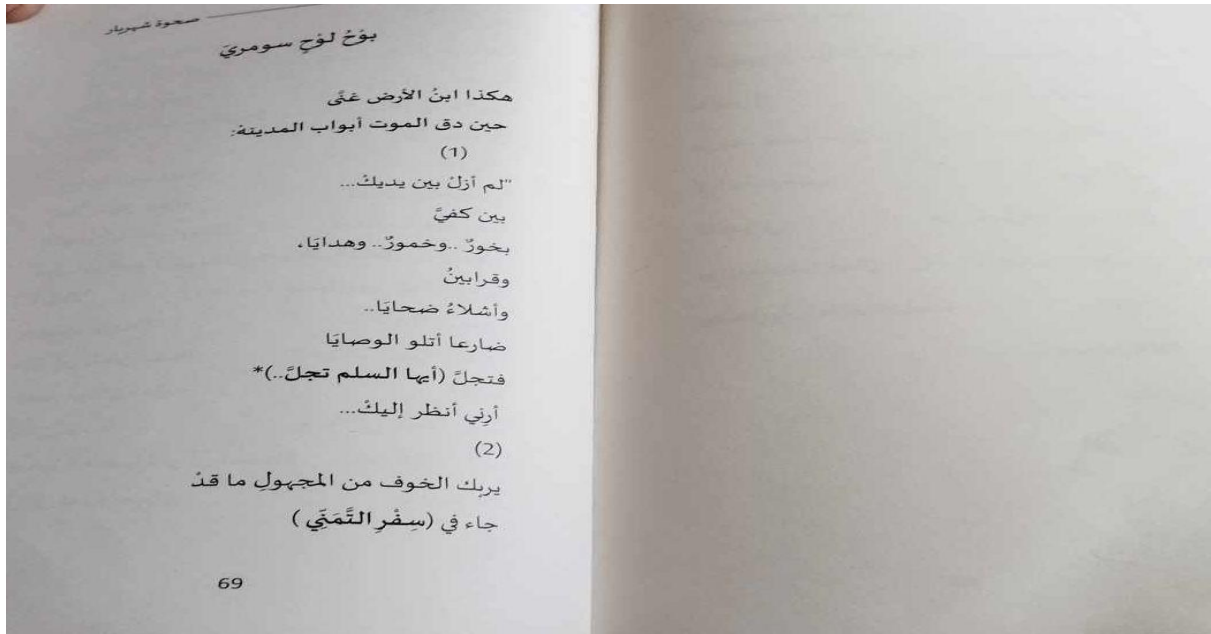 صحوة شهريار
بوْحُ لوْحِ سومريَ
هكذا ابنُ الأرض غنَّى
حين دق الموت أبواب المدينة:
(1)
"لم أزلْ بين يديكْ...
بين كفيَّ
بخورٌ ..وخمورٌ.. وهدايَا،
وقرابينُ
وأشلاءُ ضحايَا..
ضارعا أتلو الوصايَا
فتجلَّ (أيها السلم تجلَّ..)*
أرِني أنظر إليكْ...
(2)
يربك الخوف من المجهولِ ما قدْ
جاء في (سِفْرِ التَّمَنِّي )
69